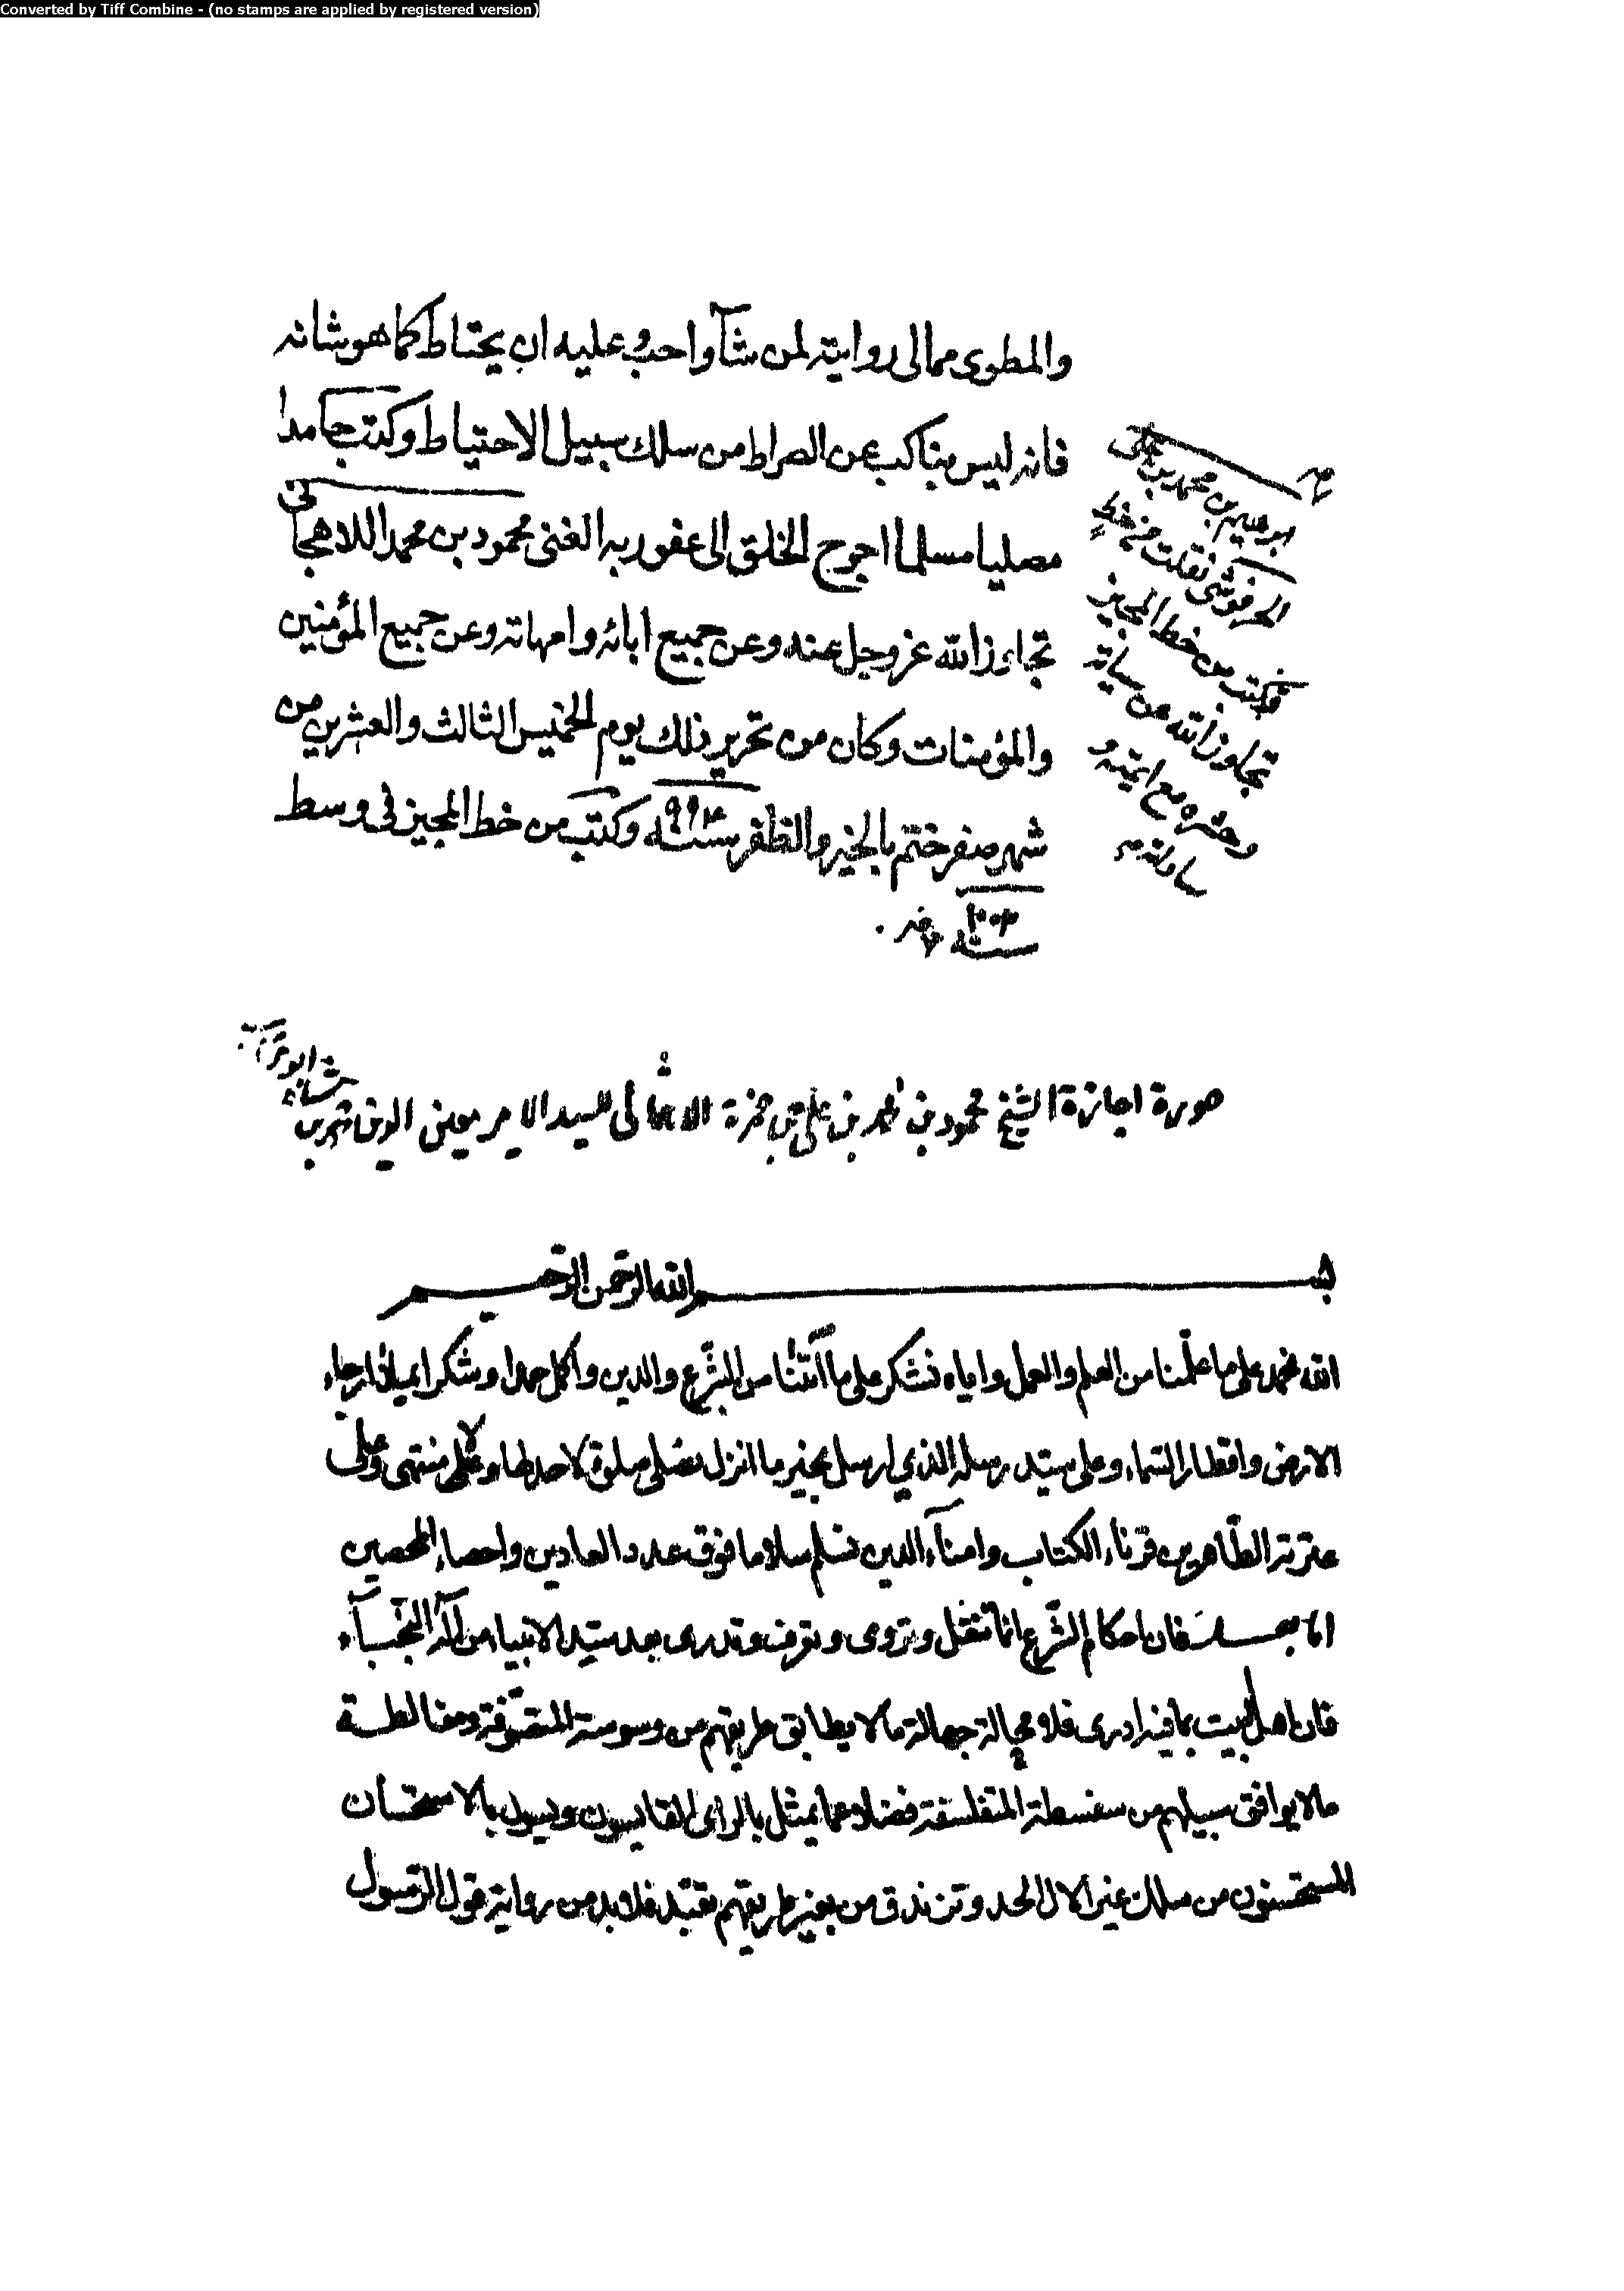 Converted by Tiff Combine - (no stamps are applied by registered version)
والمطوى ممالى روايته لمن شآ واحب عليه ان يحتاط كما هو شانه
فانه ليس بناكب عن الصراط من سلك سبيل الاحتياط وكتب حامدا
مصليا مسلما احوج الخلق الى عفو ربه الغنى محمود بن محمد اللاهجانى
تجاوز الله عز وجل عنه وعن جميع ابائه وامهاته وعن جميع المؤمنين
والمؤمنات وكان من تحرير ذلك يوم الخميس الثالث والعشرين من
شهر صفر ختم بالخير والظفر سنة ٩٩٤ وكتب من خط المجيز فى وسط
ابرهيم بن محمد بن على
الحرفوشى نقلت من خط
وكتب من خط المجيز
تجاوز الله عن سياته
وحشره مع ايمته و
ساداته
صورة اجازة الشيخ محمود بن محمد بن على بن حمزة للسيد الامير معين الدين
بسم الله الرحمن الرحيم
الله نحمد على ما علمنا من العلم والعمل واياه نشكر على ما من الشرع والدين واكمل حمدا وشكرا ارجاء
الارض واقطار السماء وعلى سيد رسله الذي ارسل بخير ما انزل نصلى صلوة لا حد لها ولا منتهى وعلى
عترته الطاهرين قرناء الكتاب وامنآء الدين نسلم سلاما فوق عدد العادين واحصاء المحصين
اما بعد فان احكام الشرع انما تنقل وتروى وتعرف وتدرى بعد سيد الانبيا من آله النجبآء
فان اهل البيت بما فيه ادرى فلا محالة جهالة ما لا يطابق طريقهم من وسوسة المتصوفة ومغالطة
ما لا يوافق سبيلهم من سفسطة المتفلسفة فضلا عما يمثل بالراى القايسون ويسول بالاستحسان
المستحسنون من سلك غير الال الحد وتزندق من بغير طريقهم تعبد فلا بد من رواية قول الرسول